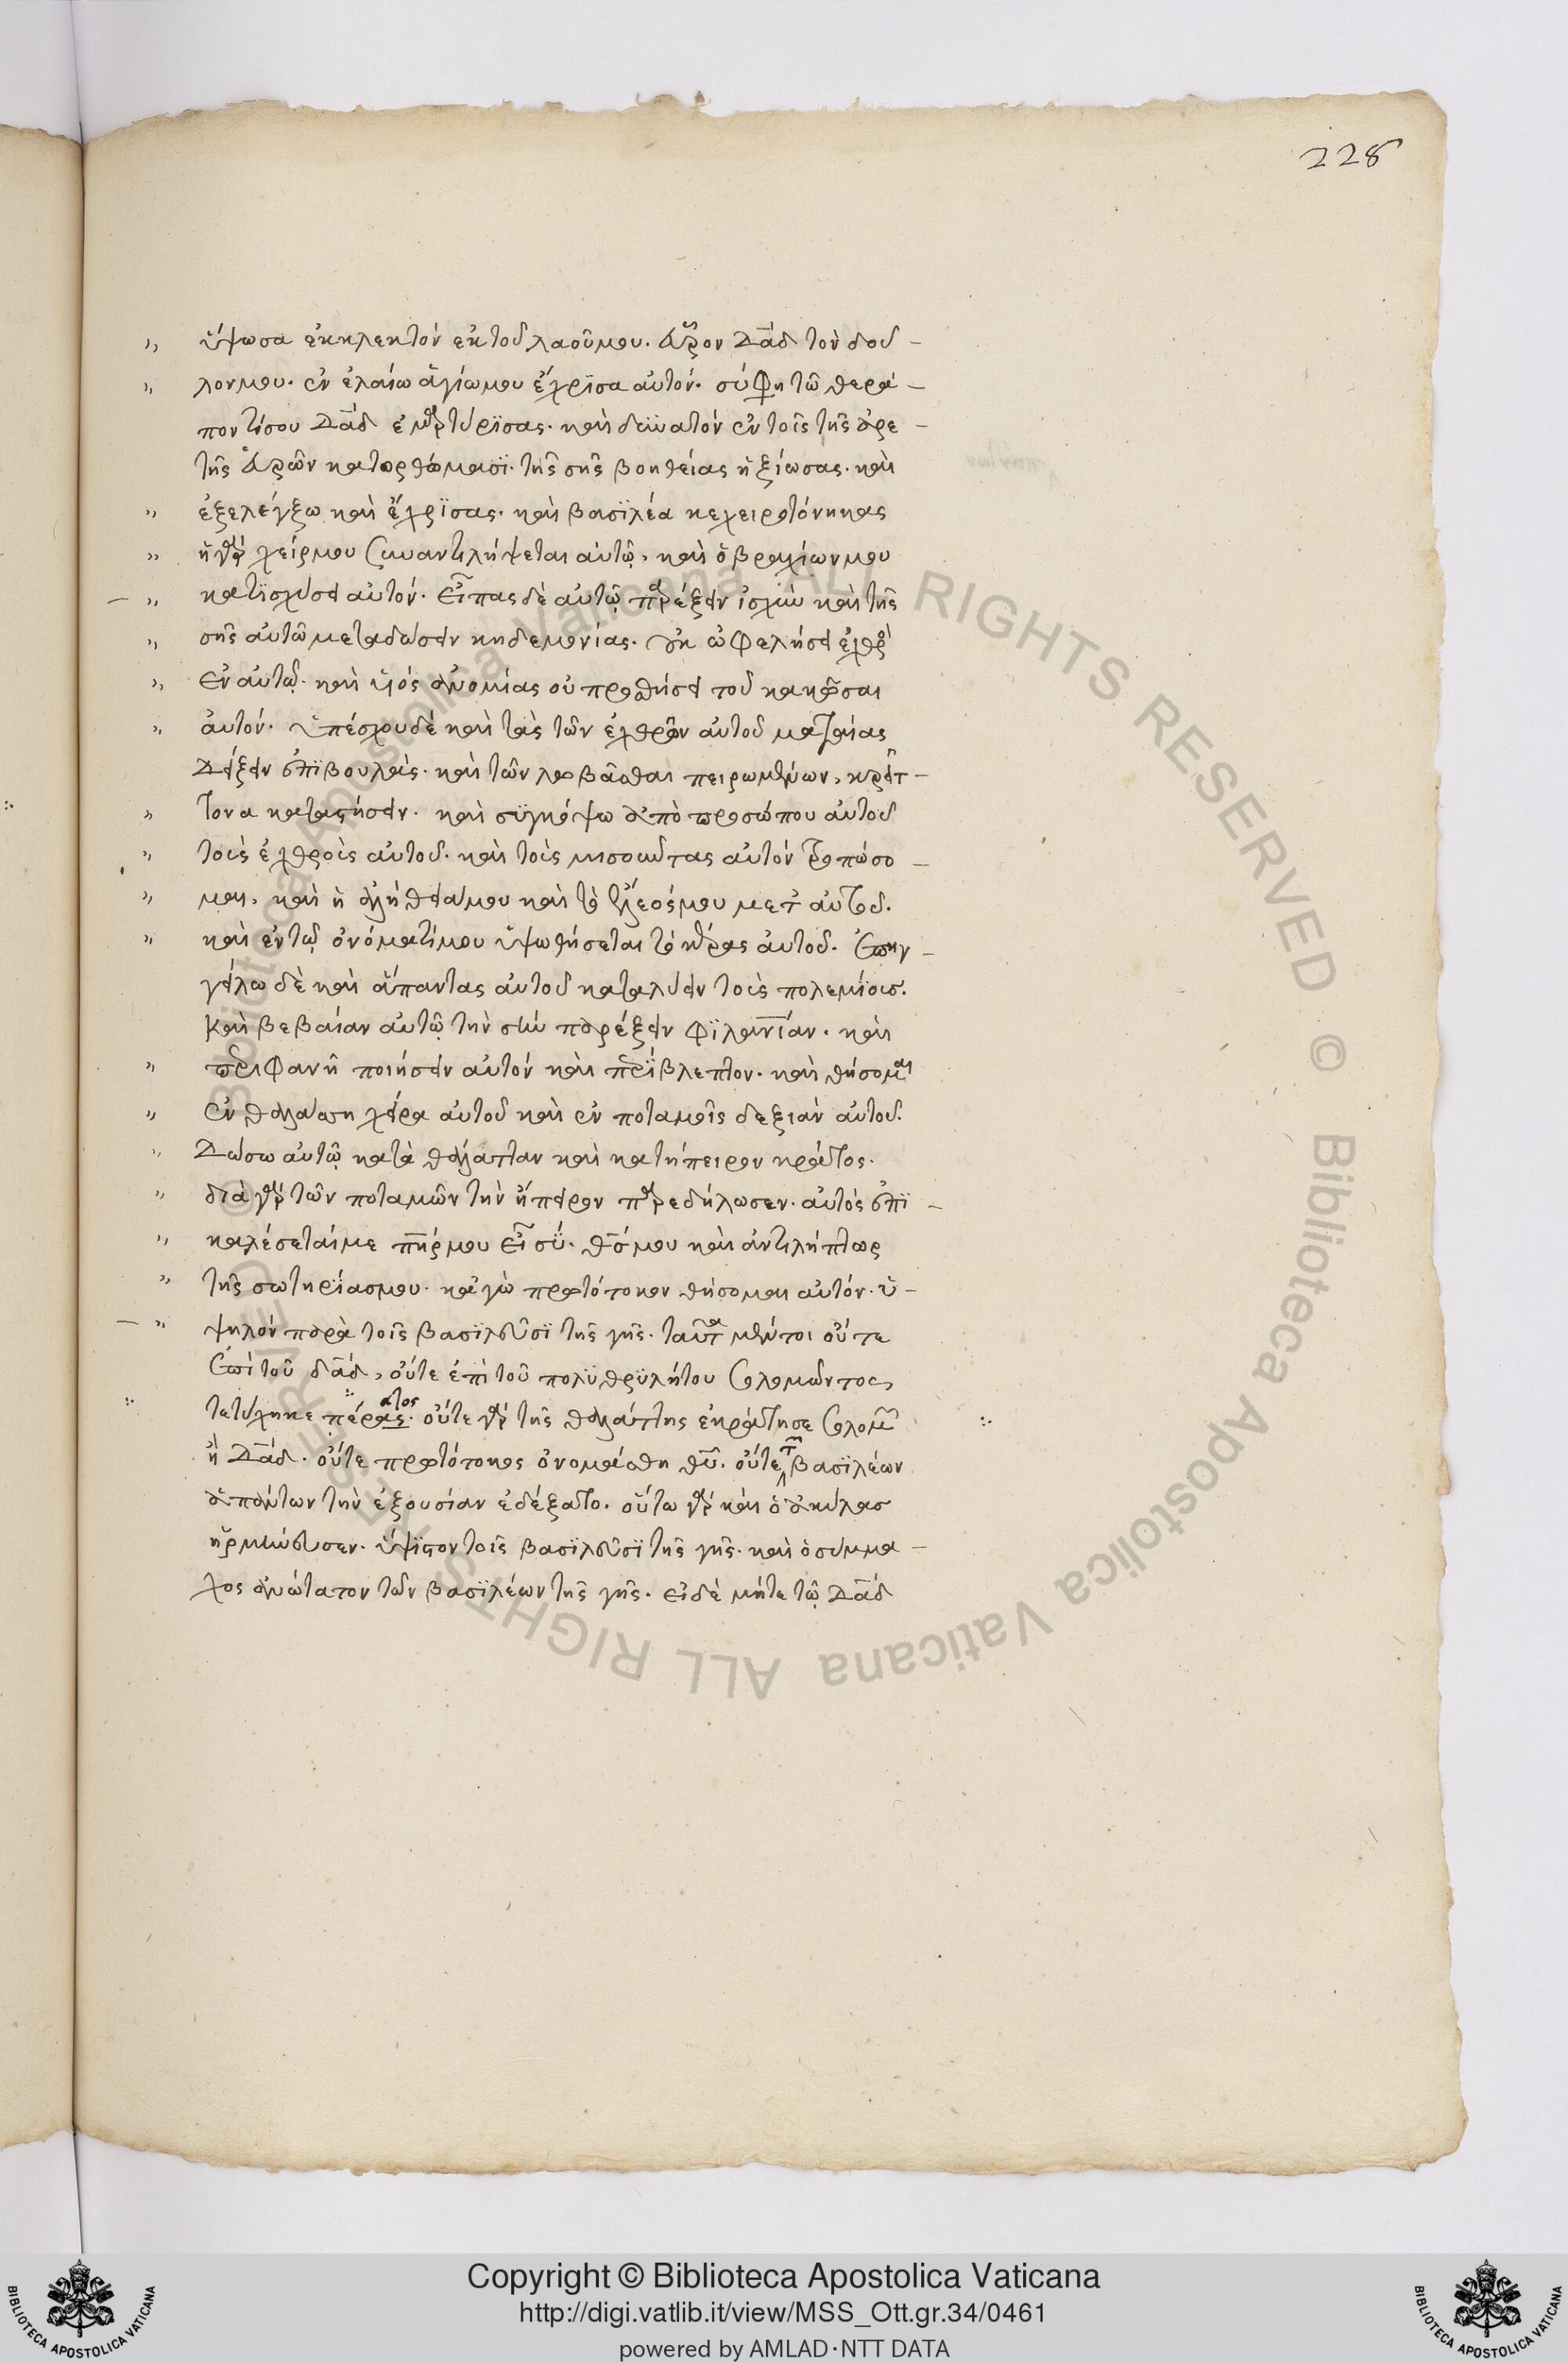 228
ὕψωσα ἐκκλεκτὸν ἐκ τοῦ λαοῦ μου. εὗρον δᾱδ τὸν δοῦ-
λον μου. ἐν ἐλαίω ἁγίω μου ἔχρϊσα αὐτόν. σύ φη τῶ θερά-
ποντί σου δᾱδ ἐμαρτύρϊσας. καὶ δϋνατὸν ἐν τοῖς τῆς ἀρε-
τῆς εὑρὼν κατορθώμασϊ. τῆς σῆς βοηθείας ἠξίωσας. καὶ
ἐξελέγξω καὶ ἔχρϊσας. καὶ βασϊλέα κεχειροτόνηκας
ἡ γὰρ χείρ μου συναντιλήψεται αὐτῶ, καὶ ὁ βραχίων μου
κατϊσχύσει αὐτόν. εἶπας δὲ αὐτῶ παρέξειν ἰσχὺν καὶ τῆς
σῆς αὐτῶ μεταδώσειν κηδεμονίας. οὐκ ὠφελήσει ἐχθρὸς
ἐν αὐτῷ. καὶ υἱὸς ἀνομίας οὐ προσθήσει τοῦ κακῶσαι
αὐτόν. ὑπέσχου δὲ καὶ τὰς τῶν ἐχθρῶν αὐτοῦ ματαίας
δείξειν ἐπϊβουλάς. καὶ τῶν λωβᾶσθαι πειρωμένων, κρείτ-
τονα καταστήσειν. καὶ συγκόψω ἀπὸ προσώπου αὐτοῦ
τοὺς ἐχθροὺς αὐτοῦ. καὶ τοὺς μισοῦντας αὐτὸν τροπώσο-
μαι, καὶ ἡ ἀλήθειά μου καὶ τὸ ἔλεός μου μετ' αὐτοῦ.
καὶ ἐν τῷ ὀνόματί μου ὑψωθήσεται τὸ κέρας αὐτοῦ. ἐπηγ-
γείλω δὲ καὶ ἅπαντας αὐτοῦ καταλύειν τοὺς πολεμίους.
καὶ βεβαίαν αὐτῶ τὴν σὴν παρέξειν φϊλαν̅ίαν. καὶ
περιφανῆ ποιήσειν αὐτὸν καὶ περίβλεπτον. καὶ θήσομαι
ἐν θαλάσση χεῖρα αὐτοῦ καὶ ἐν ποταμοῖς δεξιὰν αὐτοῦ.
δώσω αὐτῶ κατὰ θάλατταν καὶ κατήπειρον κράτος.
διὰ γὰρ τῶν ποταμῶν τὴν ἤπειρον παρεδήλωσεν. αὐτὸς ἐπϊ-
καλέσεταί με πη̅ρ μου εἶ σύ. θς̅ μου καὶ ἀντιλήπτωρ
τῆς σωτηρίας μου. κἀγὼ πρωτότοκον θήσομαι αὐτόν. ὑ-
ψηλὸν παρὰ τοῖς βασϊλεῦσϊ τῆς γῆς. ταῦτα μέντοι οὔτε
ἐπὶ τοῦ δᾱδ, οὔτε ἐπὶ τοῦ πολϋθρϋλήτου σολομῶντος
τετύχηκε πέρας ατος. οὔτε γὰρ τῆς θαλάττης ἐκράτησε σολομῶν
ἢ δᾱδ. οὔτε πρωτότοκος ὀνομάσθη θυ̅. οὔτε τῶν βασϊλέων
ἁπάντων τὴν ἐξουσίαν ἐδέξατο. οὕτω γὰρ καὶ ὁ ἀκύλας
ἡρμήνευσεν. ὕψϊστον τοῖς βασϊλεῦσϊ τῆς γῆς. καὶ ὁ σύμμα-
χος ἀνώτατον τῶν βασϊλέων τῆς γῆς. εἰ δὲ μήτε τῶ δᾱδ
Copyright © Biblioteca Apostolica Vaticana
http://digi.vatlib.it/view/MSS_Ott.gr.34/0461
powered by AMLAD·NTT DATA